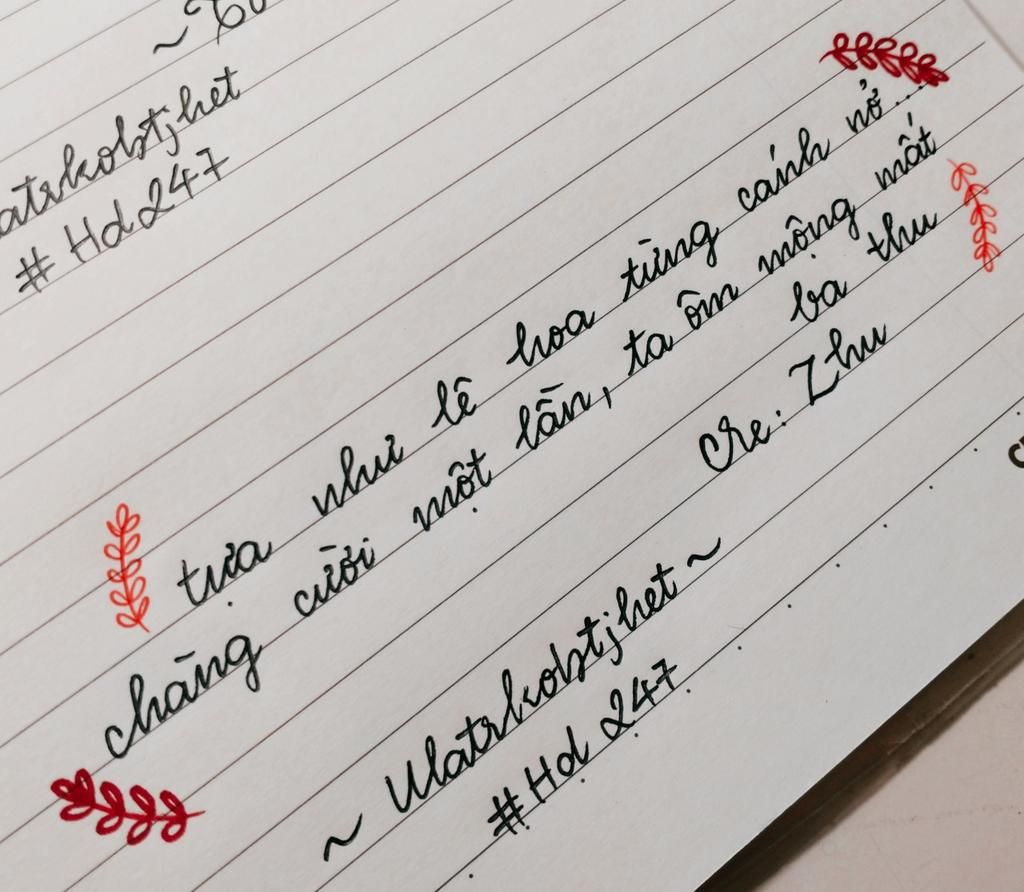 atrkobtjhet
# Hd 247
tựa như lê hoa từng cánh nở...
chàng cười một lần, ta ôm mộng mất
ba thu
Cre: Zhu
~ Ulatrkobtjhet ~
# Hd 247